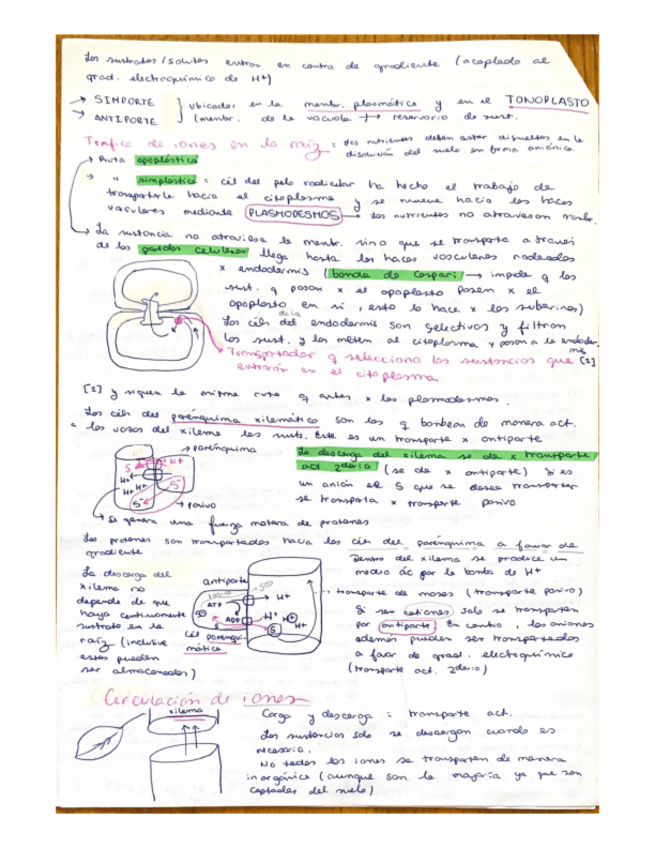 Los sustratos/solutos entran en contra de gradiente (acoplado al
grad. electroquímico de H+)
→ SIMPORTE
→ ANTIPORTE
ubicadas en la membr. plasmática y en el TONOPLASTO
(membr. de la vacuola → reservorio de sust.
Tráfico de iones en la raíz : los nutrientes deben estar disueltos en la
disolución del suelo en forma aniónica
→ Ruta apoplástica
→ " simplástica : cél del pelo radicular ha hecho el trabajo de
transportarle hacia el citoplasma y se mueve hacia los haces
vasculares mediante PLASMODESMOS → los nutrientes no atraviesan membr.
→ La sustancia no atraviesa la membr. sino que se transporta a través
de las paredes celulares llega hasta los haces vasculares rodeados
x endodermis (banda de Caspari → impide q las
sust. q pasan x el apoplasto pasen x el
apoplasto en sí, esto lo hace x las suberinas)
Las céls de la endodermis son selectivas y filtran
las sust. y las meten al citoplasma y pasan a la endoder
mis
Transportador q selecciona las sustancias que [2]
entrarán en el citoplasma
[2] y siguen la misma ruta q antes x los plasmodesmos.
Las céls del parénquima xilemático son las q bombean de manera act.
a los vasos del xilema las susts. Este es un transporte x antiporte
→ parénquima
S H+
H+
H+ H+
S-
→ pasivo
La descarga del xilema se da x transporte
act 2dario (se da x antiporte) Si es
un anión el S que se desea transportar
se transporta x transporte pasivo
→ Se genera una fuerza motora de protones
Los protones son transportados hacia las céls del parénquima a favor de
gradiente
Dentro del xilema se produce un
medio ác por la bomba de H+
La descarga del
xilema no
depende de que
haya continuamente
sustrato en la
raíz (inclusive
estos pueden
ser almacenados)
antiporte
ATP
ADP
H+
H+
H+
S
cél parenqui-
mática
transporte de masas (transporte pasivo)
Si son cationes solo se transportan
por antiporte. En cambio, los aniones
además pueden ser transportados
a favor de grad. electroquímico
(transporte act. 2dario)
Circulación de iones
xilema
Carga y descarga : transporte act.
Las sustancias solo se descargan cuando es
necesario.
No todos los iones se transportan de manera
inorgánica (aunque son la mayoría ya que son
captados del suelo)